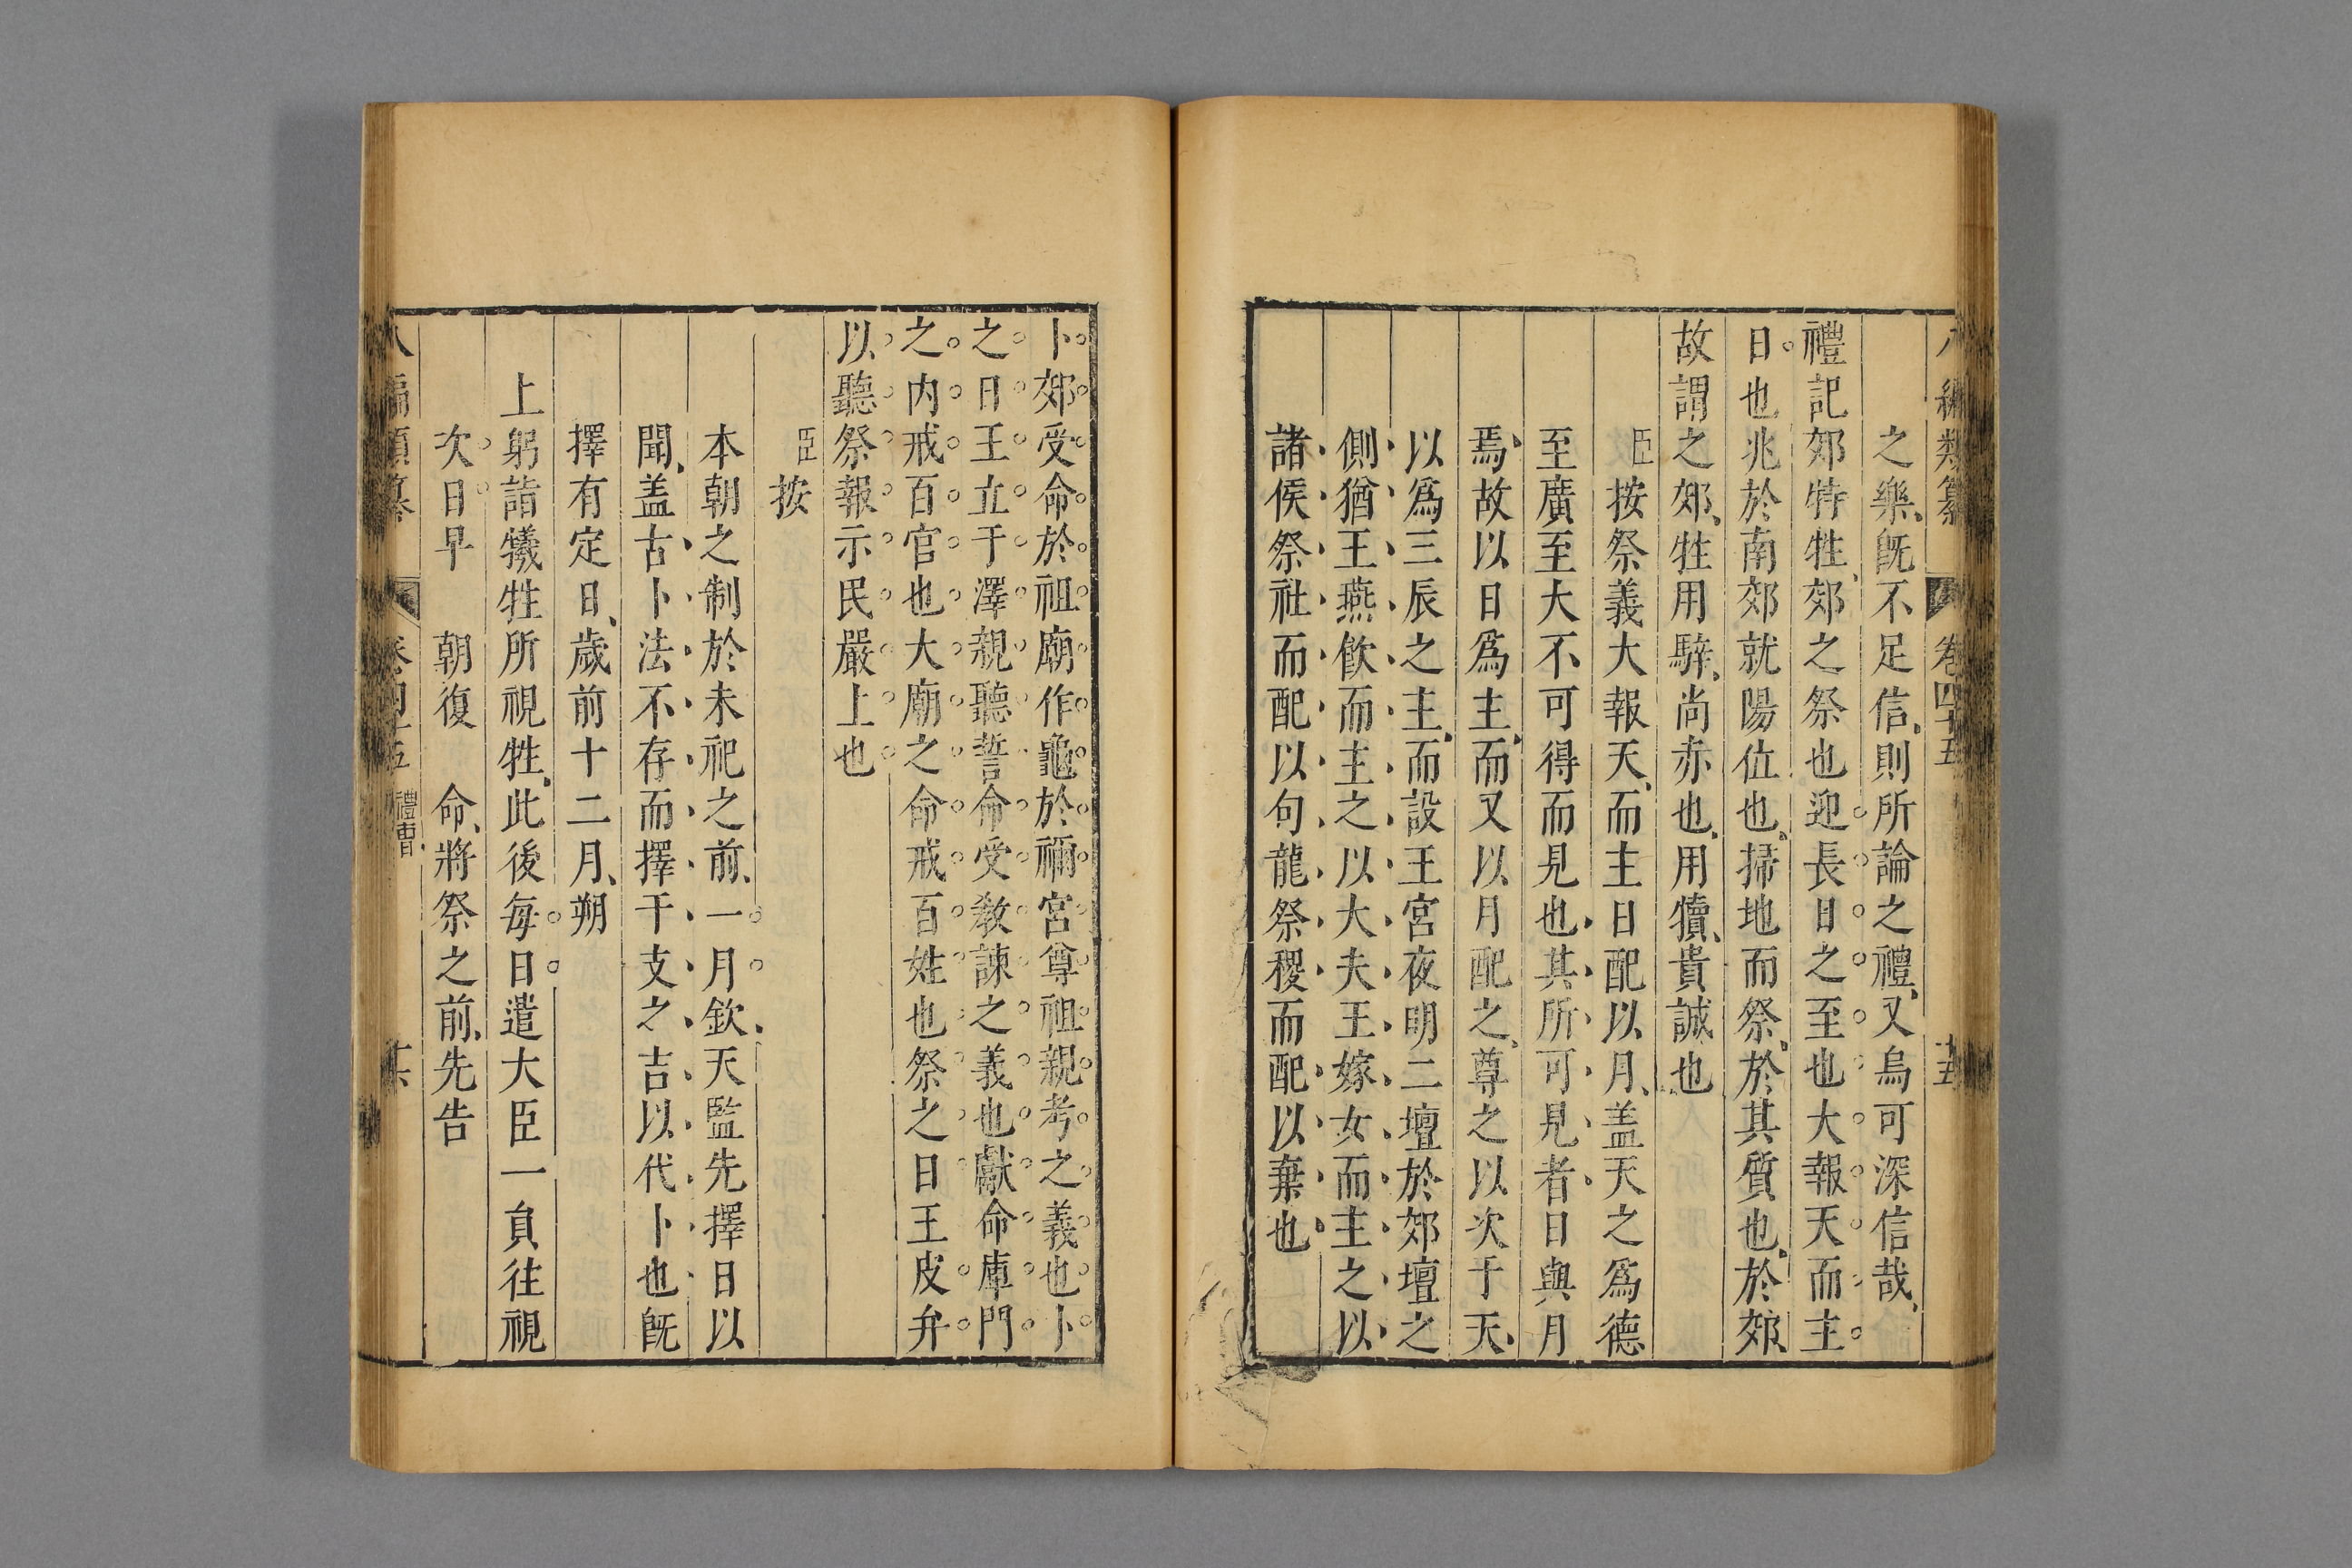 八編類纂 卷四十五 十五
之樂、旣不足信、則所論之禮、又烏可深信哉、
禮記郊特牲、郊之祭也迎長日之至也大報天而主
日也兆於南郊就陽位也、掃地而祭、於其質也、於郊、
故謂之郊、牲用騂、尚赤也、用犢、貴誠也
臣按祭義大報天、而主日配以月、盖天之爲德、
至廣至大不可得而見也、其所可見者日與月
焉、故以日爲主、而又以月配之、尊之以次于天、
以爲三辰之主、而設王宮夜明二壇於郊壇之
側猶王燕飮而主之以大夫王嫁女而主之以
諸侯祭社而配以句龍祭稷而配以棄也
卜郊受命於祖廟作龜於禰宮尊祖親考之義也卜
之日王立于澤親聽誓命受敎諫之義也獻命庫門
之内戒百官也大廟之命戒百姓也祭之日王皮弁
以聽祭報示民嚴上也
臣按
本朝之制於未祀之前、一月欽、天監先擇日以
聞、盖古卜法不存而擇干支之吉以代卜也旣
擇有定日、歲前十二月、朔
上躬詣犧牲所視牲、此後每日遣大臣一員往視
次日早 朝復 命、將祭之前、先告
八編類纂 卷四十五 禮曹